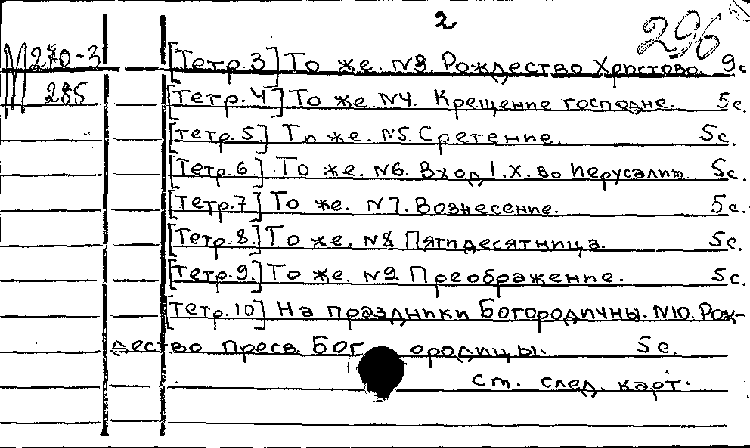 2
296
М270-3 [Тетр.3] То же. №3. Рождество Христово. 9с.
285 [Тетр.4] То же №4. Крещение господне. 5с.
[тетр.5] То же. №5 Сретение. 5с.
[Тетр.6] То же. №6. Вход I.X. во Иерусалим 5с.
[Тетр.7] То же. №7. Вознесение. 5с.
[Тетр.8.] То же. №8 Пятидесятница. 5с.
[Тетр.9.] То же. №9 Преображение. 5с.
[Тетр.10] На праздники Богородичны. №10. Рож-
дество пресв. Богородицы. 5с.
См. след. карт.